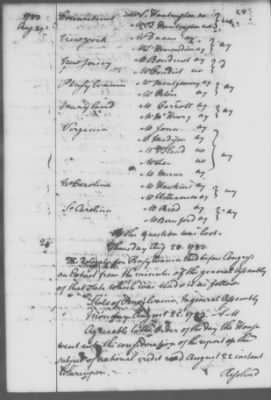 1783 Connecticut Mr S. Huntington no } no
Aug 27 Mr B Huntington no
New York Mr Duane ay } ay
Mr L'Hommedieu ay
New Jersey Mr Boudinot ay } ay
Mr Condict no
Pensylvania Mr Montgomery ay } ay
Mr Peters ay
Maryland Mr Carroll ay } ay
Mr McHenry ay
Virginia Mr Jones ay
Mr Madison ay
Mr Bland no } ay
Mr Lee no
Mr Mercer ay
No Carolina Mr Hawkins ay } ay
Mr Williamson ay
So Carolina Mr Read ay } ay
Mr Beresford ay
So the question was lost.
28 Thursday Aug 28. 1783
The Delegates for Pensylvania laid before Congress
an Extract from the minutes of the general Assembly
of that State which was read as follows
State of Pensylvania, In general Assembly
August 25. 1783 A.M
Agreeable to the order of the day the House
went into the consideration of the report on the
subject of national credit read August 22 instant
Whereupon,
Resolved